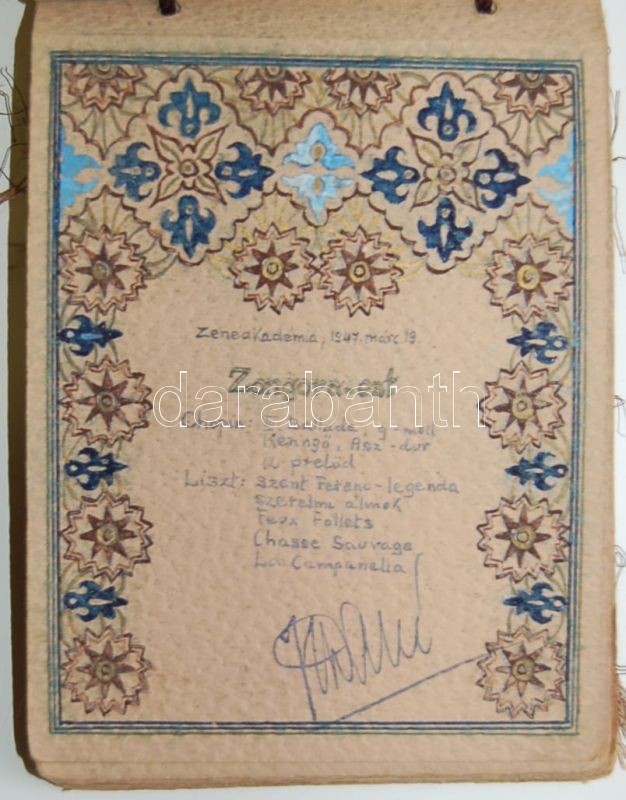 Zeneakadémia, 1947. márc. 19.
Zongora est
darabanth
Chopin: Ballada g-moll
Keringő, Asz-dur
12 prelűd
Liszt: Szent Ferenc-legenda
Szerelmi álmok
Feux Follets
Chasse Sauvage
La Campanella